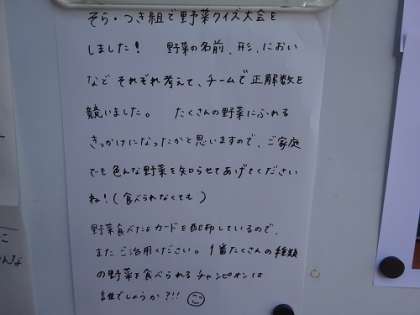 そら・つき組で野菜クイズ大会を
しました！ 野菜の名前、形、におい
など それぞれ考えて、チームで正解数を
競いました。 たくさんの野菜にふれる
きっかけになったかと思いますので、ご家庭
でも色んな野菜を知らせてあげてください
ね！(食べられなくても)
野菜食べたよカードを配布しているので、
またご活用ください。1番たくさんの種類
の野菜を食べられるチャンピオンは
誰でしょうか？!!